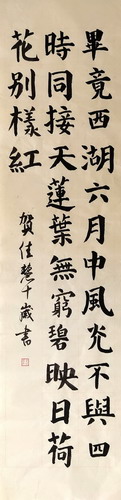 畢竟西湖六月中風光不與四
時同接天蓮葉無窮碧映日荷
花別樣紅
賀佳慧十歲書